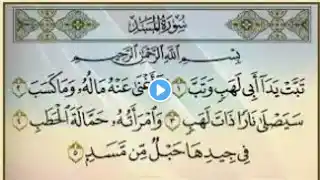 سُورَةُ المَسَدِ
بِسْمِ اللَّهِ الرَّحْمَٰنِ الرَّحِيمِ
تَبَّتْ يَدَا أَبِي لَهَبٍ وَتَبَّ ١ مَا أَغْنَىٰ عَنْهُ مَالُهُ وَمَا كَسَبَ ٢
سَيَصْلَىٰ نَارًا ذَاتَ لَهَبٍ ٣ وَامْرَأَتُهُ حَمَّالَةَ الْحَطَبِ ٤
فِي جِيدِهَا حَبْلٌ مِّن مَّسَدٍ ٥